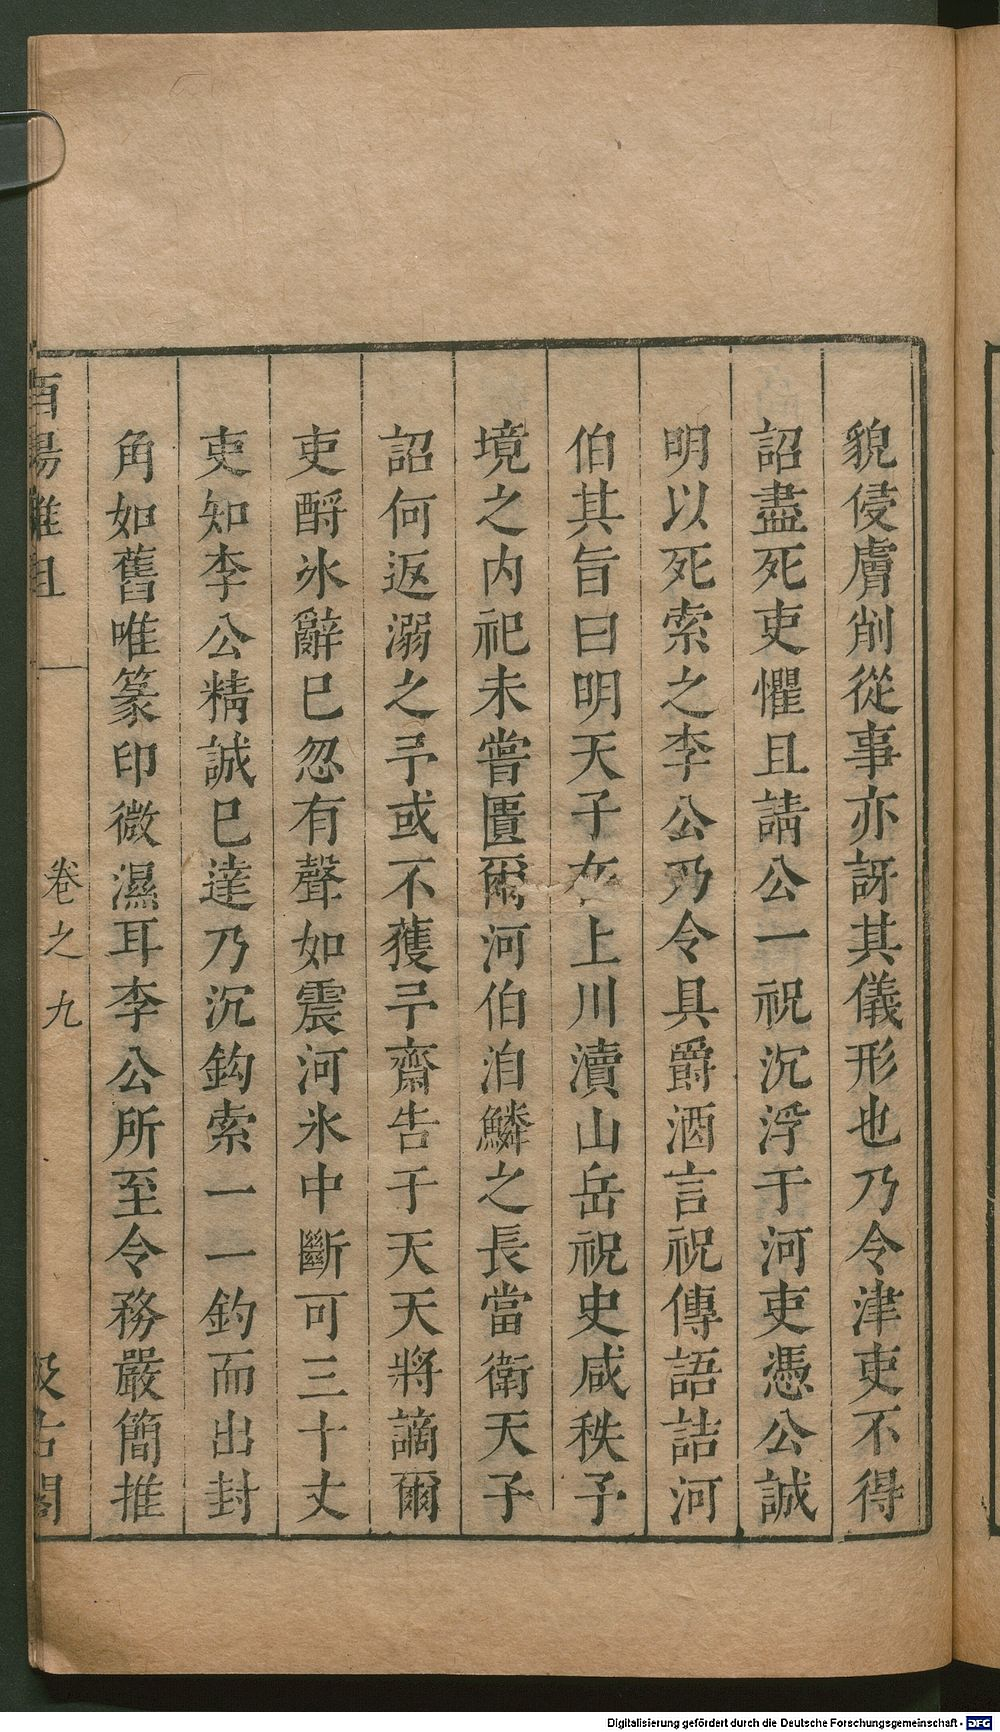 貌侵膚削從事亦訝其儀形也乃令津吏不得
詔盡死吏懼且請公一祝沉浮于河吏憑公誠
明以死索之李公乃令具爵酒言祝傳語詰河
伯其旨曰明天子在上川瀆山岳祝史咸秩予
境之内祀未嘗匱爾河伯洎鱗之長當衛天子
詔何返溺之予或不獲予齋告于天天將謫爾
吏酹冰辭已忽有聲如震河冰中斷可三十丈
吏知李公精誠已達乃沉鈎索一一釣而出封
角如舊唯篆印微濕耳李公所至令務嚴簡推
酉陽雜俎 卷之九 汲古閣
Digitalisierung gefördert durch die Deutsche Forschungsgemeinschaft - DFG